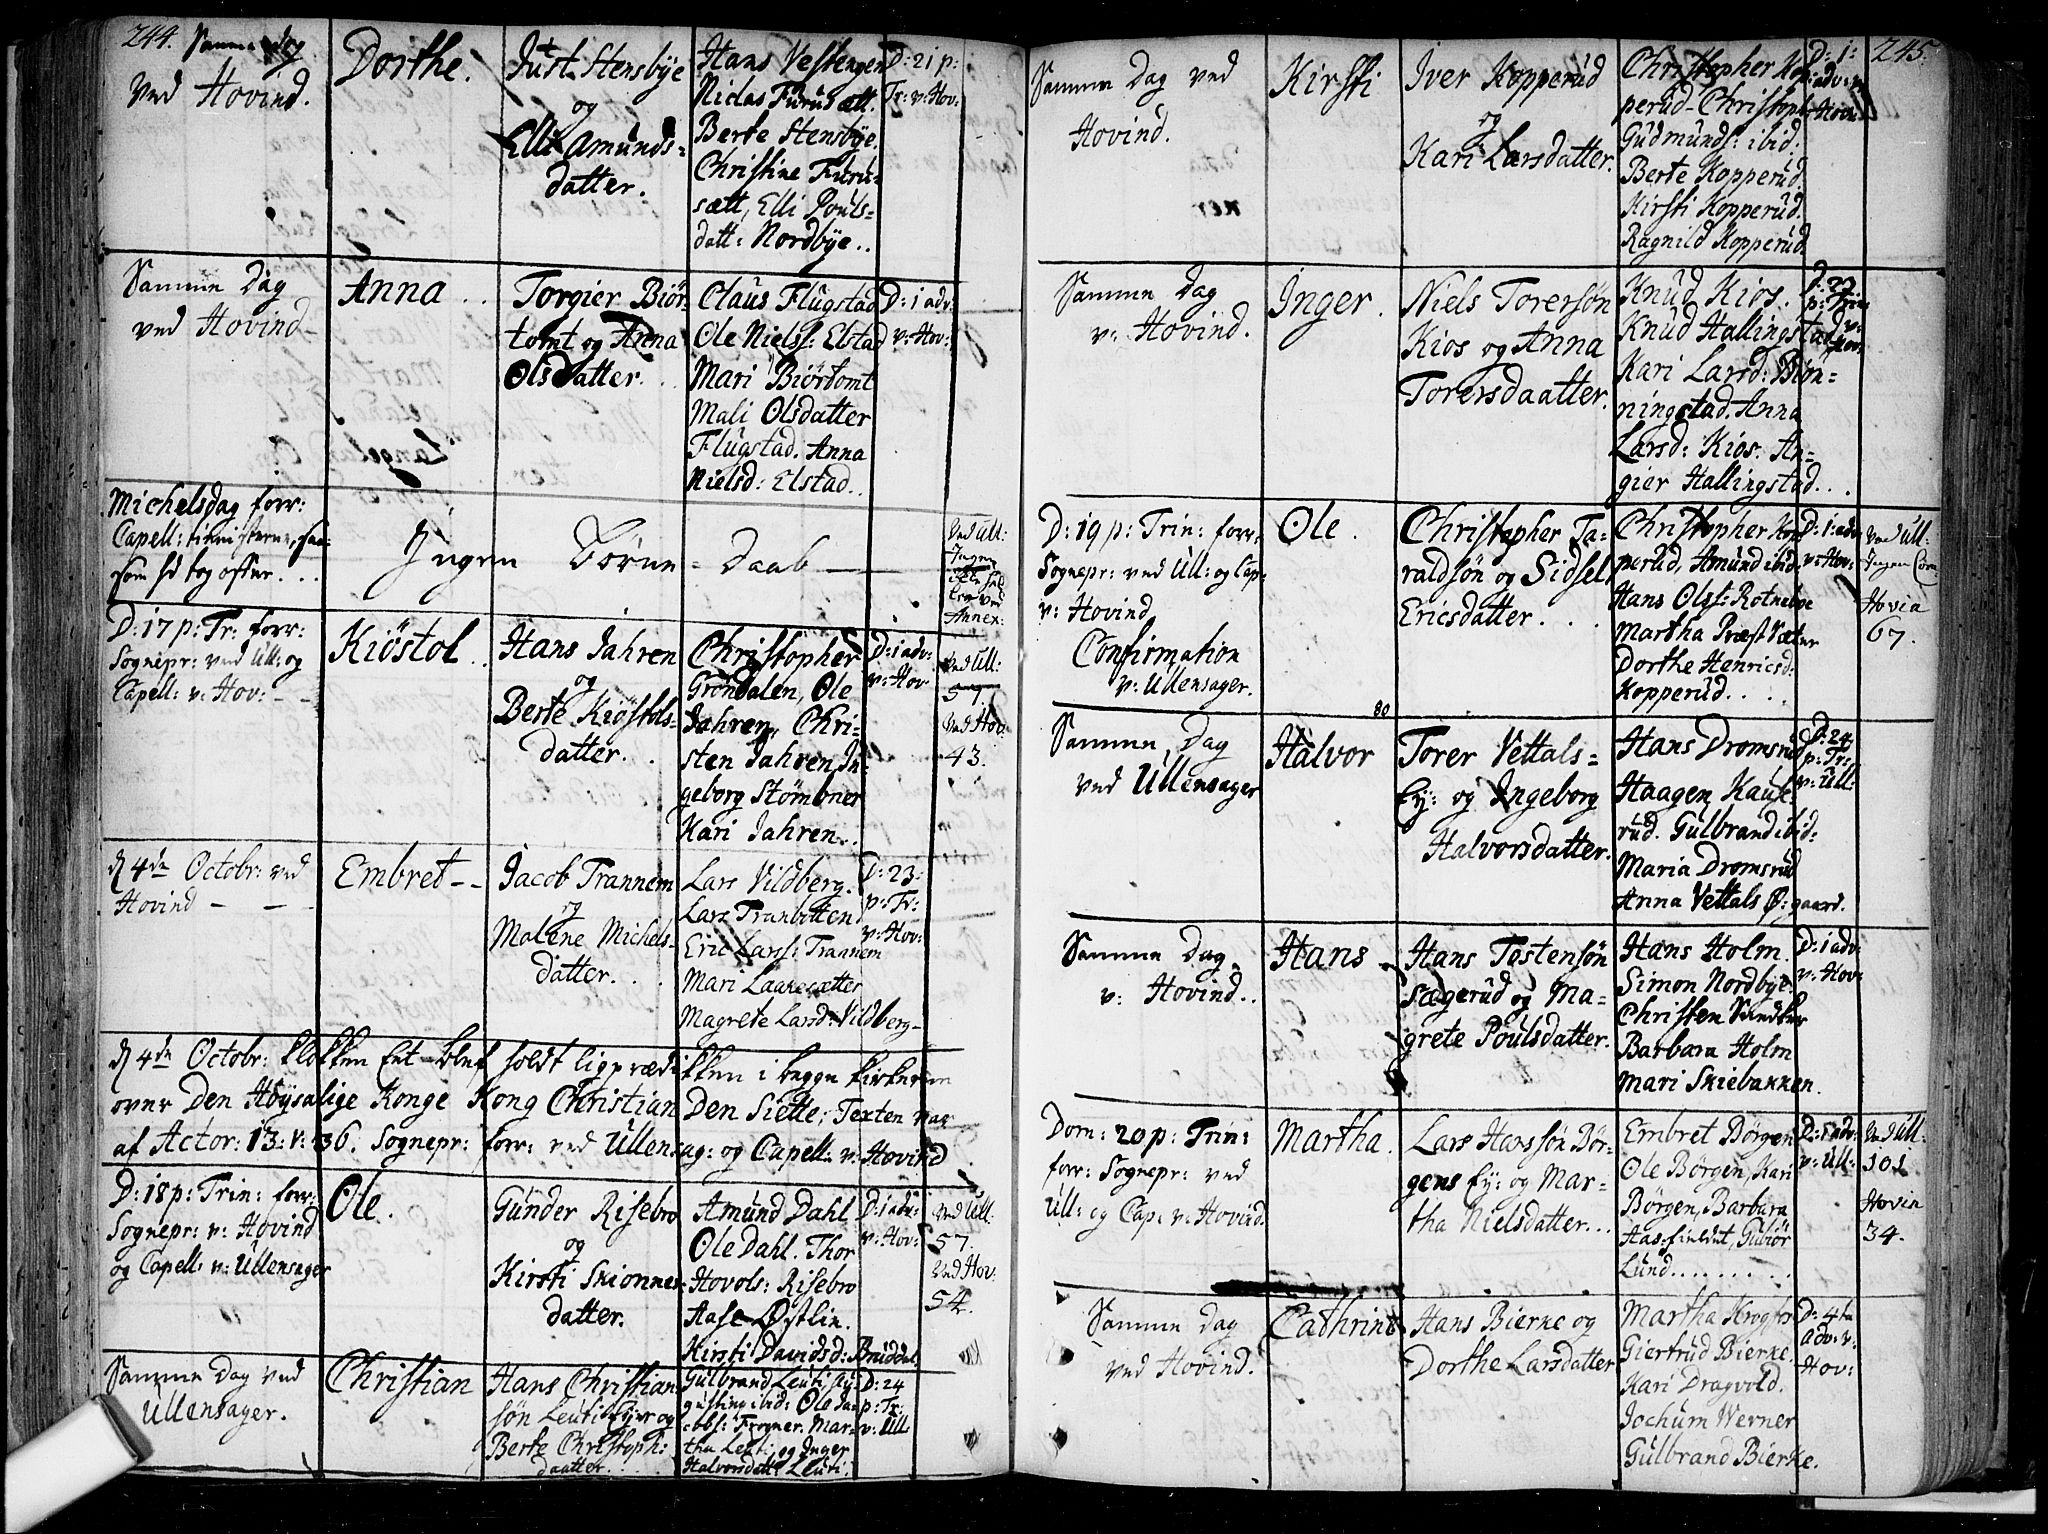 244.
Samme dag
ved Hovind.
Dorthe.
Just Stensbÿe
og
Elli Amunds-
datter.
Hans Vestengen
Niclas Furusætt.
Berte Stensbÿe.
Christine Furu-
sætt, Elli Pouls-
datt: Nordbÿe..
D: 21 p:
Tr: v: Hov:
Samme Dag
ved Hovind
Anna
Torgier Biör-
tomt og Anna
Olsdatter.
Claus Flugstad
Ole Niels: Elstad
Mari Biörtomt
Mali Olsdatter
Flugstad. Anna
Nielsd: Elstad..
D: 1 adv:
v: Hov:
Michelsdag forr:
Capell:
som hö tog offer...
Ingen Börne-Daab
Ved Ull:
Ingen
Annex:
D: 17 p: Tr: forr:
Sognepr: ved Ull: og
Capell: v: Hov:
Kiöstol
Hans Jahren
og
Berte Kiöstols-
datter.
Christopher
Gröndalen, Ole
Jahren, Chri-
sten Jahren, In-
geborg Stömbner
Kari Jahren..
D: 1 adv:
v: Hov
Ved Ull:
57.
Ved Hov:
43.
d 4de Octobr: ved
Hovind
Embret
Jacob Trannem
og
Malene Michels-
datter.
Lars Vildberg.
Lars Tranbotten
Eric Larss: Trannem
Mari Laakesætter
Magrete Larsd: Vildberg
D: 23
p: Tr:
v: Hov:
d 4de Octobr: klokken Eet blef holdt ligprædikken i begge kirkerne
over Den Höÿsalige Konge Kong Christian Den Siette; Texten var
af Actor: 13: v: 36. Sognepr: forr: ved Ullensag: og Capell: v: Hovind
D: 18 p: Trin: forr:
Sognepr: v: Hovind
og Capell: v: Ullensager
Ole.
Gunder Risebro
og
Kirsti Skionnes-
datter.
Amund Dahl
Ole Dahl. Thor
Hovols: Risebro
Aase Östlin.
Kirsti Davidsd: Bruddal
D: 1 adv:
v: Hov:
Ved Ull:
57.
Ved Hov:
54.
Samme Dag ved
Ullensager.
Christian
Hans Christian-
sön Leuti Eÿer og
Berte Christoph:
daatter.
Gulbrand Leuti Au-
gustin ibid: Ole Ja-
cobs: Frogner. Mar-
tha Leuti og Inger
Halvorsdatt: Leuti.
D: 24
p: Tr:
v: Ull
245.
Samme Dag ved
Hovind.
Kirsti
Iver Kopperud
og
Kari Larsdatter.
Christopher Kop-
perud-Christoph
Gudmunds: ibid.
Berte Kopperud
Kirsti Kopperud.
Ragnild Kopperud
D: 1:
adv:
Hov:
Samme Dag
v: Hovind.
Inger.
Niels Torersön
Kios og Anna
Torersdaatter.
Knud Kios.
Knud Hallingstad
Kari Larsd: Biön-
ningstad. Anna
Larsd: Kios. An-
gier Hallingstad...
D: 22
p: Trin:
v:
Hov:
D: 19 p: Trin: forr:
Sognepr: ved Ull: og Cap:
v: Hovind
Confirmation
v: Ullensager.
Ole.
Christopher Ta-
raldsön og Sidsel
Ericsdatter...
Christopher Kop-
perud, Amund ibid:
Hans Olss: Rotneboe
Martha Præst Sæter
Dorthe Henricsd:
Kopperud..
D: 1 adv
v: Hov:
Ved Ull:
Ingen Com:
Hovin
67.
Samme Dag
ved Ullensager
80
Halvor
Torer Vettals-
Eÿ: og Ingeborg
Halvorsdatter.
Hans Dromsrud
Haagen Kause-
rud. Gulbrand ibid:
Maria Dromsrud
Anna Vettals Ö: gaard.
D: 24
p: Tr:
v: Ull:
Samme Dag
v: Hovind..
Hans
Hans Tostensön
Sægerud og Ma-
grete Poulsdatter.
Hans Holm.
Simon Nordbÿe.
Christen
Barbara Holm
Mari Skiebakken.
D: 1 adv:
v: Hov:
Dom: 20 p: Trin:
forr: Sognepr: ved
Ull: og Cap: v: Hovind.
Martha.
Lars Hanssön Bör-
gens Eÿ: og Mar-
tha Nielsdatter...
Embret Börgen
Ole Börgen, Kari
Börgen, Barbara
Aas-fieldet, Gubiör
Lund........
D: 1 adv:
v: Ull:
Ved Ull:
101
Hovin
34.
Samme Dag
ved Hovind.
Cathrine
Hans Bierke og
Dorthe Larsdatter
Martha Krogfos
Giertrud Bierke.
Kari Dragvold.
Jochum Werner
Gulbrand Bierke.
D: 4de
adv: v:
Hov: